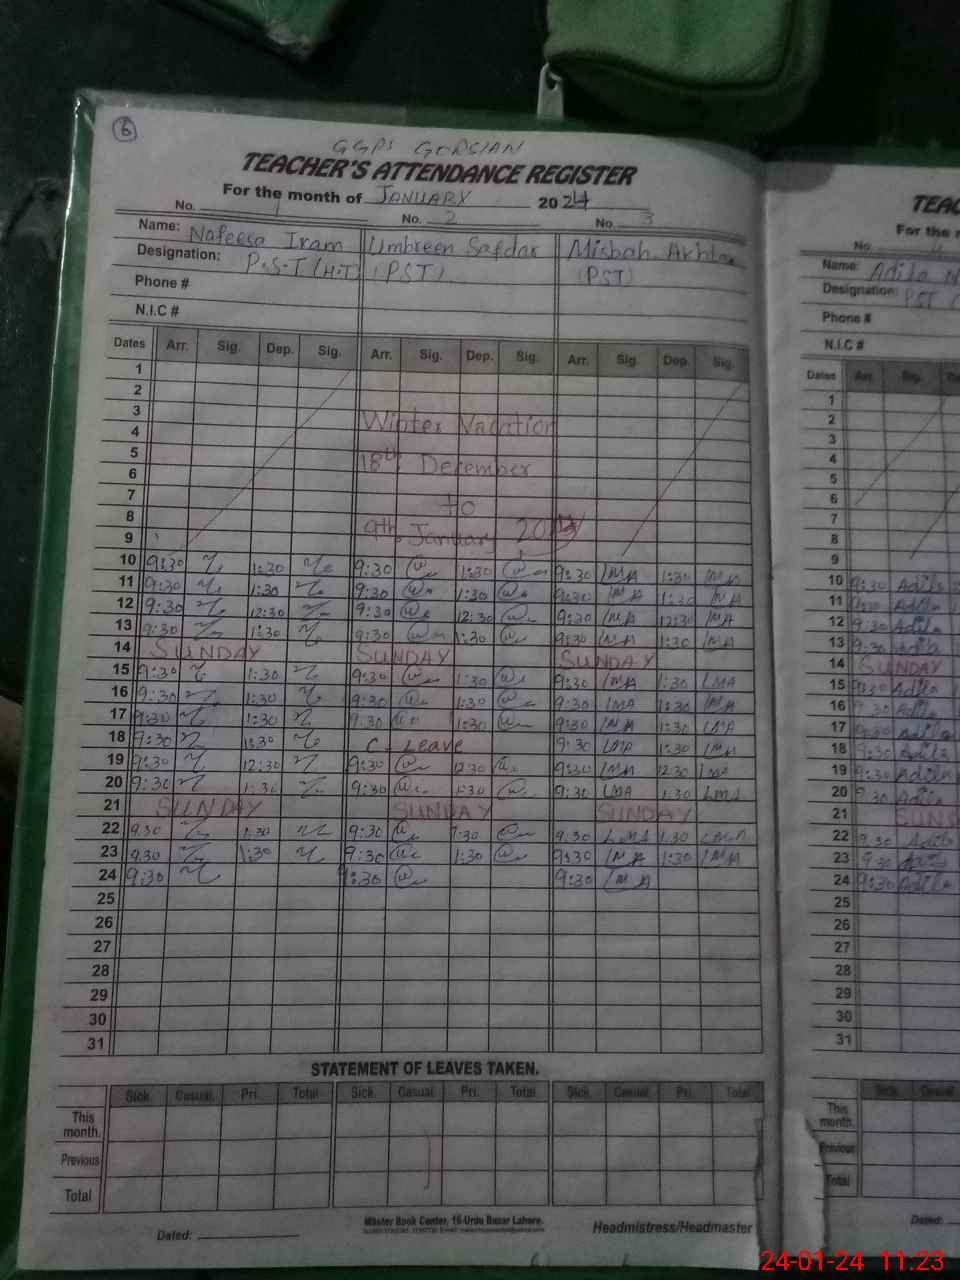 6
GGPS GORSIAN
TEACHER'S ATTENDANCE REGISTER
For the month of JANUARY 2024
No. 1 No. 2 No. 3
Name: Nafeesa Iram Umbreen Safdar Misbah Akhtar
Designation: P.S.T (H.T) (PST) (PST)
Phone #
N.I.C #
Dates Arr. Sig. Dep. Sig. Arr. Sig. Dep. Sig. Arr. Sig. Dep. Sig.
1
2
3 Winter Vacation
4
5 18th December
6
7 to
8
9 9th January 2024
10 9:30 1:30 9:30 1:30 9:30 MA 1:30 MA
11 9:30 1:30 9:30 1:30 9:30 MA 1:30 MA
12 9:30 12:30 9:30 12:30 9:30 MA 12:30 MA
13 9:30 1:30 9:30 1:30 9:30 MA 1:30 MA
14 SUNDAY SUNDAY SUNDAY
15 9:30 1:30 9:30 1:30 9:30 MA 1:30 MA
16 9:30 1:30 9:30 1:30 9:30 MA 1:30 MA
17 9:30 1:30 9:30 1:30 9:30 MA 1:30 MA
18 9:30 1:30 C. Leave 9:30 MA 1:30 MA
19 9:30 12:30 9:30 12:30 9:30 MA 12:30 MA
20 9:30 1:30 9:30 1:30 9:30 MA 1:30 MA
21 SUNDAY SUNDAY SUNDAY
22 9:30 1:30 9:30 1:30 9:30 MA 1:30 MA
23 9:30 1:30 9:30 1:30 9:30 MA 1:30 MA
24 9:30 9:30 9:30 MA
25
26
27
28
29
30
31
STATEMENT OF LEAVES TAKEN.
Sick. Casual. Pri. Total Sick. Casual Pri. Total Sick. Casual. Pri. Total
This month.
Previous
Total
Dated:
Master Book Center, 16-Urdu Bazar Lahore.
Headmistress/Headmaster
TEAC
For the m
No. 4
Name: Adila N
Designation: PST
Phone #
N.I.C #
Dates Arr. Sig. De
1
2
3
4
5
6
7
8
9
10 9:30 Adila
11 9:30 Adila
12 9:30 Adila
13 9:30 Adila
14 SUNDAY
15 9:30 Adila
16 9:30 Adila
17 9:30 Adila
18 9:30 Adila
19 9:30 Adila
20 9:30 Adila
21 SUND
22 9:30 Adila
23 9:30 Adila
24 9:30 Adila
25
26
27
28
29
30
31
Sick. Casual
This month.
Previous
Total
Dated:
24-01-24 11:23